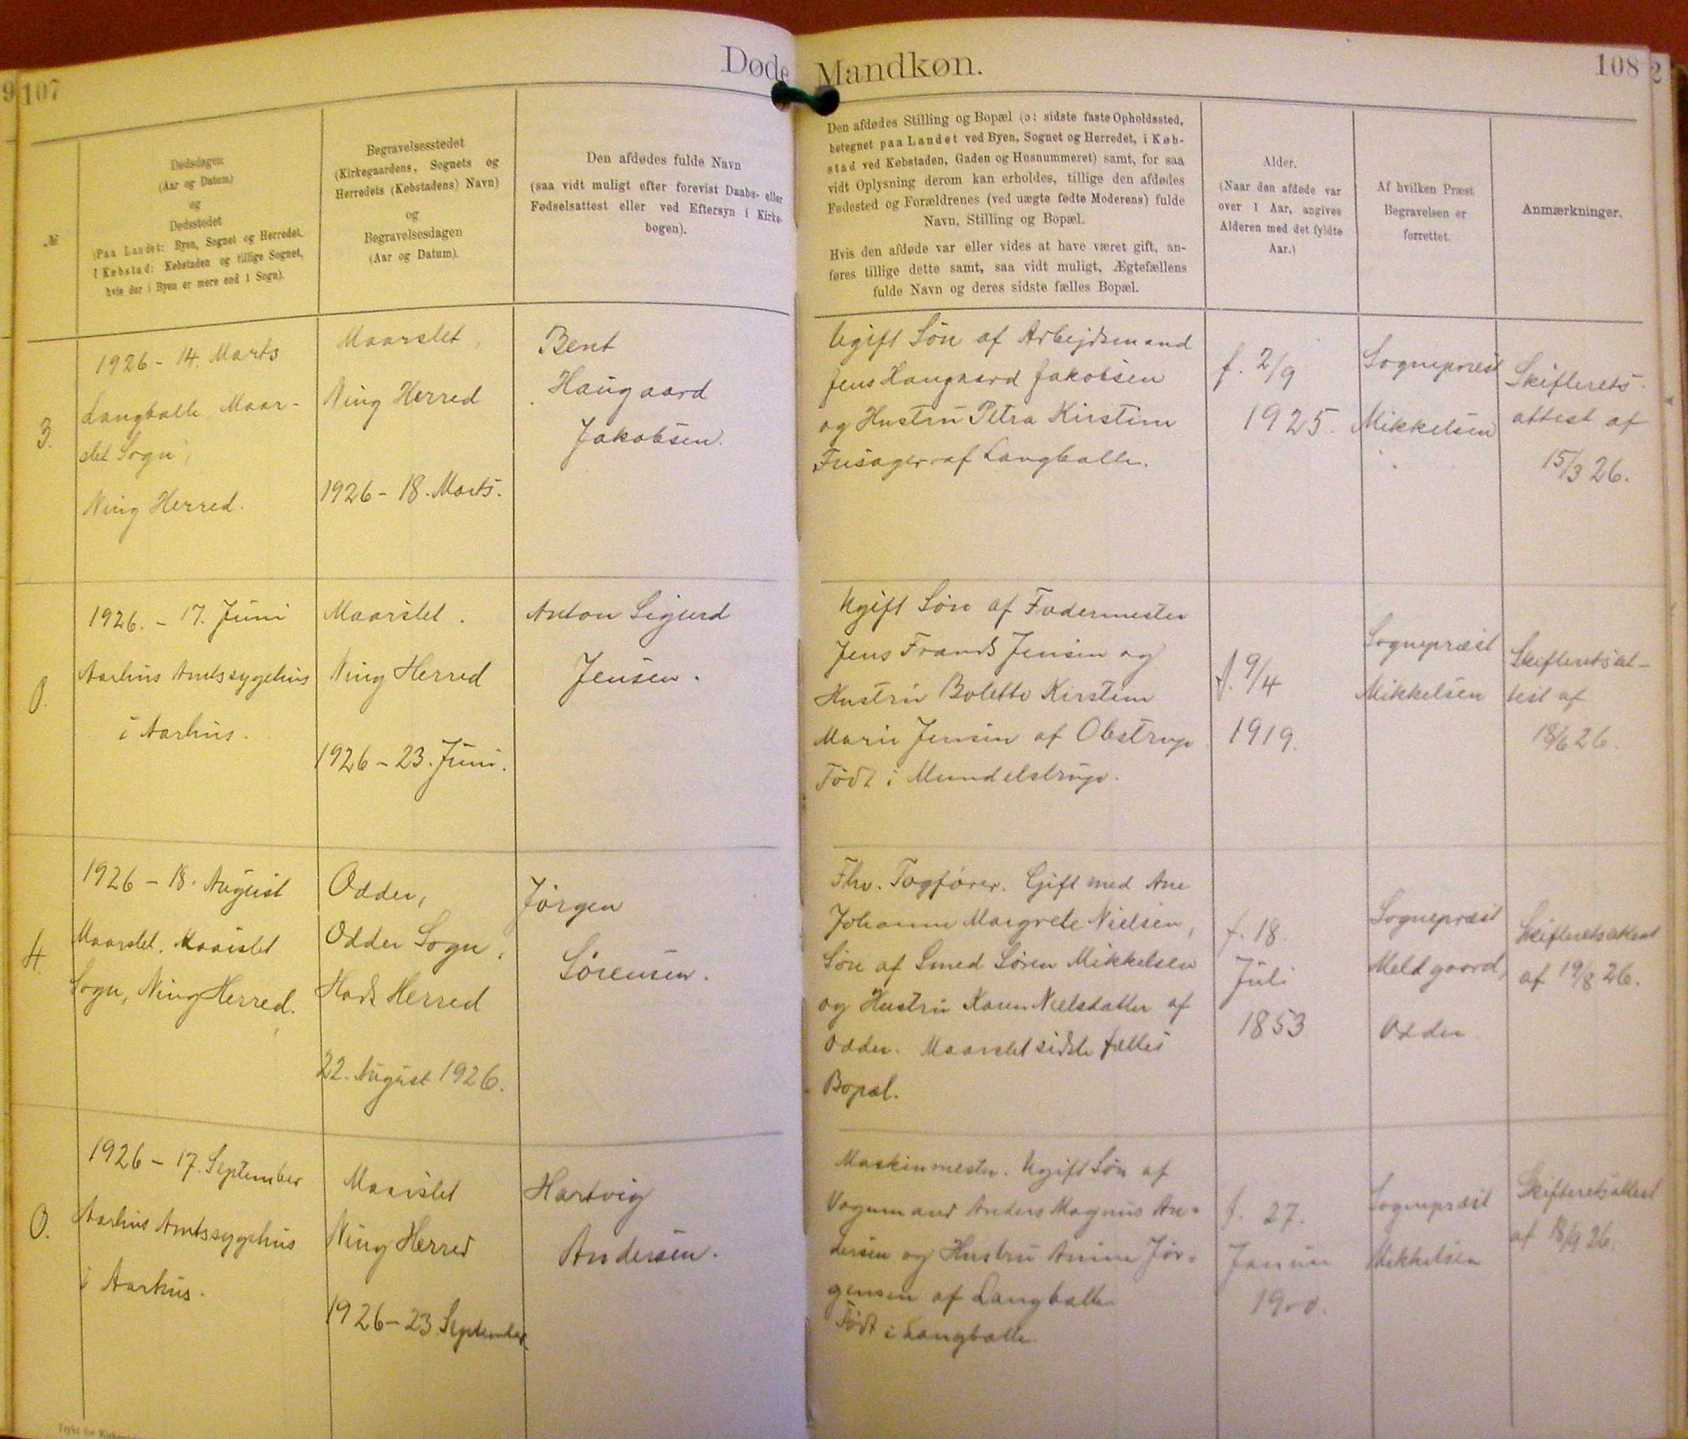 9
107
Døde
Mandkøn.
108
2
№
Dødsdagen
(Aar og Datum)
og
Dødsstedet
(Paa Landet: Byen, Sognet og Herredet,
i Købstad: Købstaden og tillige Sognet,
hvis der i Byen er mere end 1 Sogn).
Begravelsesstedet
(Kirkegaardens, Sognets og
Herredets (Købstadens) Navn)
og
Begravelsesdagen
(Aar og Datum).
Den afdødes fulde Navn
(saa vidt muligt efter forevist Daabs- eller
Fødselsattest eller ved Eftersyn i Kirke-
bogen).
Den afdødes Stilling og Bopæl (ɔ: sidste faste Opholdssted,
betegnet paa Landet ved Byen, Sognet og Herredet, i Køb-
stad ved Købstaden, Gaden og Husnummeret) samt, for saa
vidt Oplysning derom kan erholdes, tillige den afdødes
Fødested og Forældrenes (ved uægte fødte Moderens) fulde
Navn, Stilling og Bopæl.
Hvis den afdøde var eller vides at have været gift, an-
føres tillige dette samt, saa vidt muligt, Ægtefællens
fulde Navn og deres sidste fælles Bopæl.
Alder.
(Naar den afdøde var
over 1 Aar, angives
Alderen med det fyldte
Aar.)
Af hvilken Præst
Begravelsen er
forrettet.
Anmærkninger.
3.
1926 - 14. Marts
Langballe Maar-
slet Sogn,
Ning Herred.
Maarslet,
Ning Herred
1926 - 18. Marts.
Bent
Haugaard
Jakobsen.
Ugift Søn af Arbejdsmand
Jens Haugaard Jakobsen
og Hustru Petra Kirstine
Fusager af Langballe.
f. 2/9
1925.
Sognepræst
Mikkelsen
Skifterets-
attest af
15/3 26.
0.
1926. - 17. Juni
Aarhus Amtssygehus
i Aarhus.
Maarslet.
Ning Herred
1926 - 23. Juni.
Anton Sigurd
Jensen.
Ugift Søn af Fodermester
Jens Frands Jensen og
Hustru Bolette Kirstine
Marie Jensen af Obstrup
Født i Mundelstrup.
f. 9/4
1919.
Sognepræst
Mikkelsen
Skifteretsat-
test af
18/6 26.
4.
1926 - 18. August
Maarslet. Maarslet
Sogn, Ning Herred.
Odder,
Odder Sogn,
Hads Herred
22. August 1926.
Jørgen
Sørensen.
Fhv. Togfører. Gift med Ane
Johanne Margrete Nielsen,
Søn af Smed Søren Mikkelsen
og Hustru Karen Nielsdatter af
Odder. Maarslet sidste fælles
Bopæl.
f. 18.
Juli
1853
Sognepræst
Meldgaard,
Odder
Skifteretsattest
af 19/8 26.
0.
1926 - 17. September
Aarhus Amtssygehus
i Aarhus.
Maarslet
Ning Herred
1926 - 23. September
Hartvig
Andersen.
Maskinmester. Ugift Søn af
Vognmand Anders Magnus An-
dersen og Hustru Anine Jør-
gensen af Langballe
Født i Langballe
f. 27.
Januar
1900.
Sognepræst
Mikkelsen
Skifteretsattest
af 18/9 26.